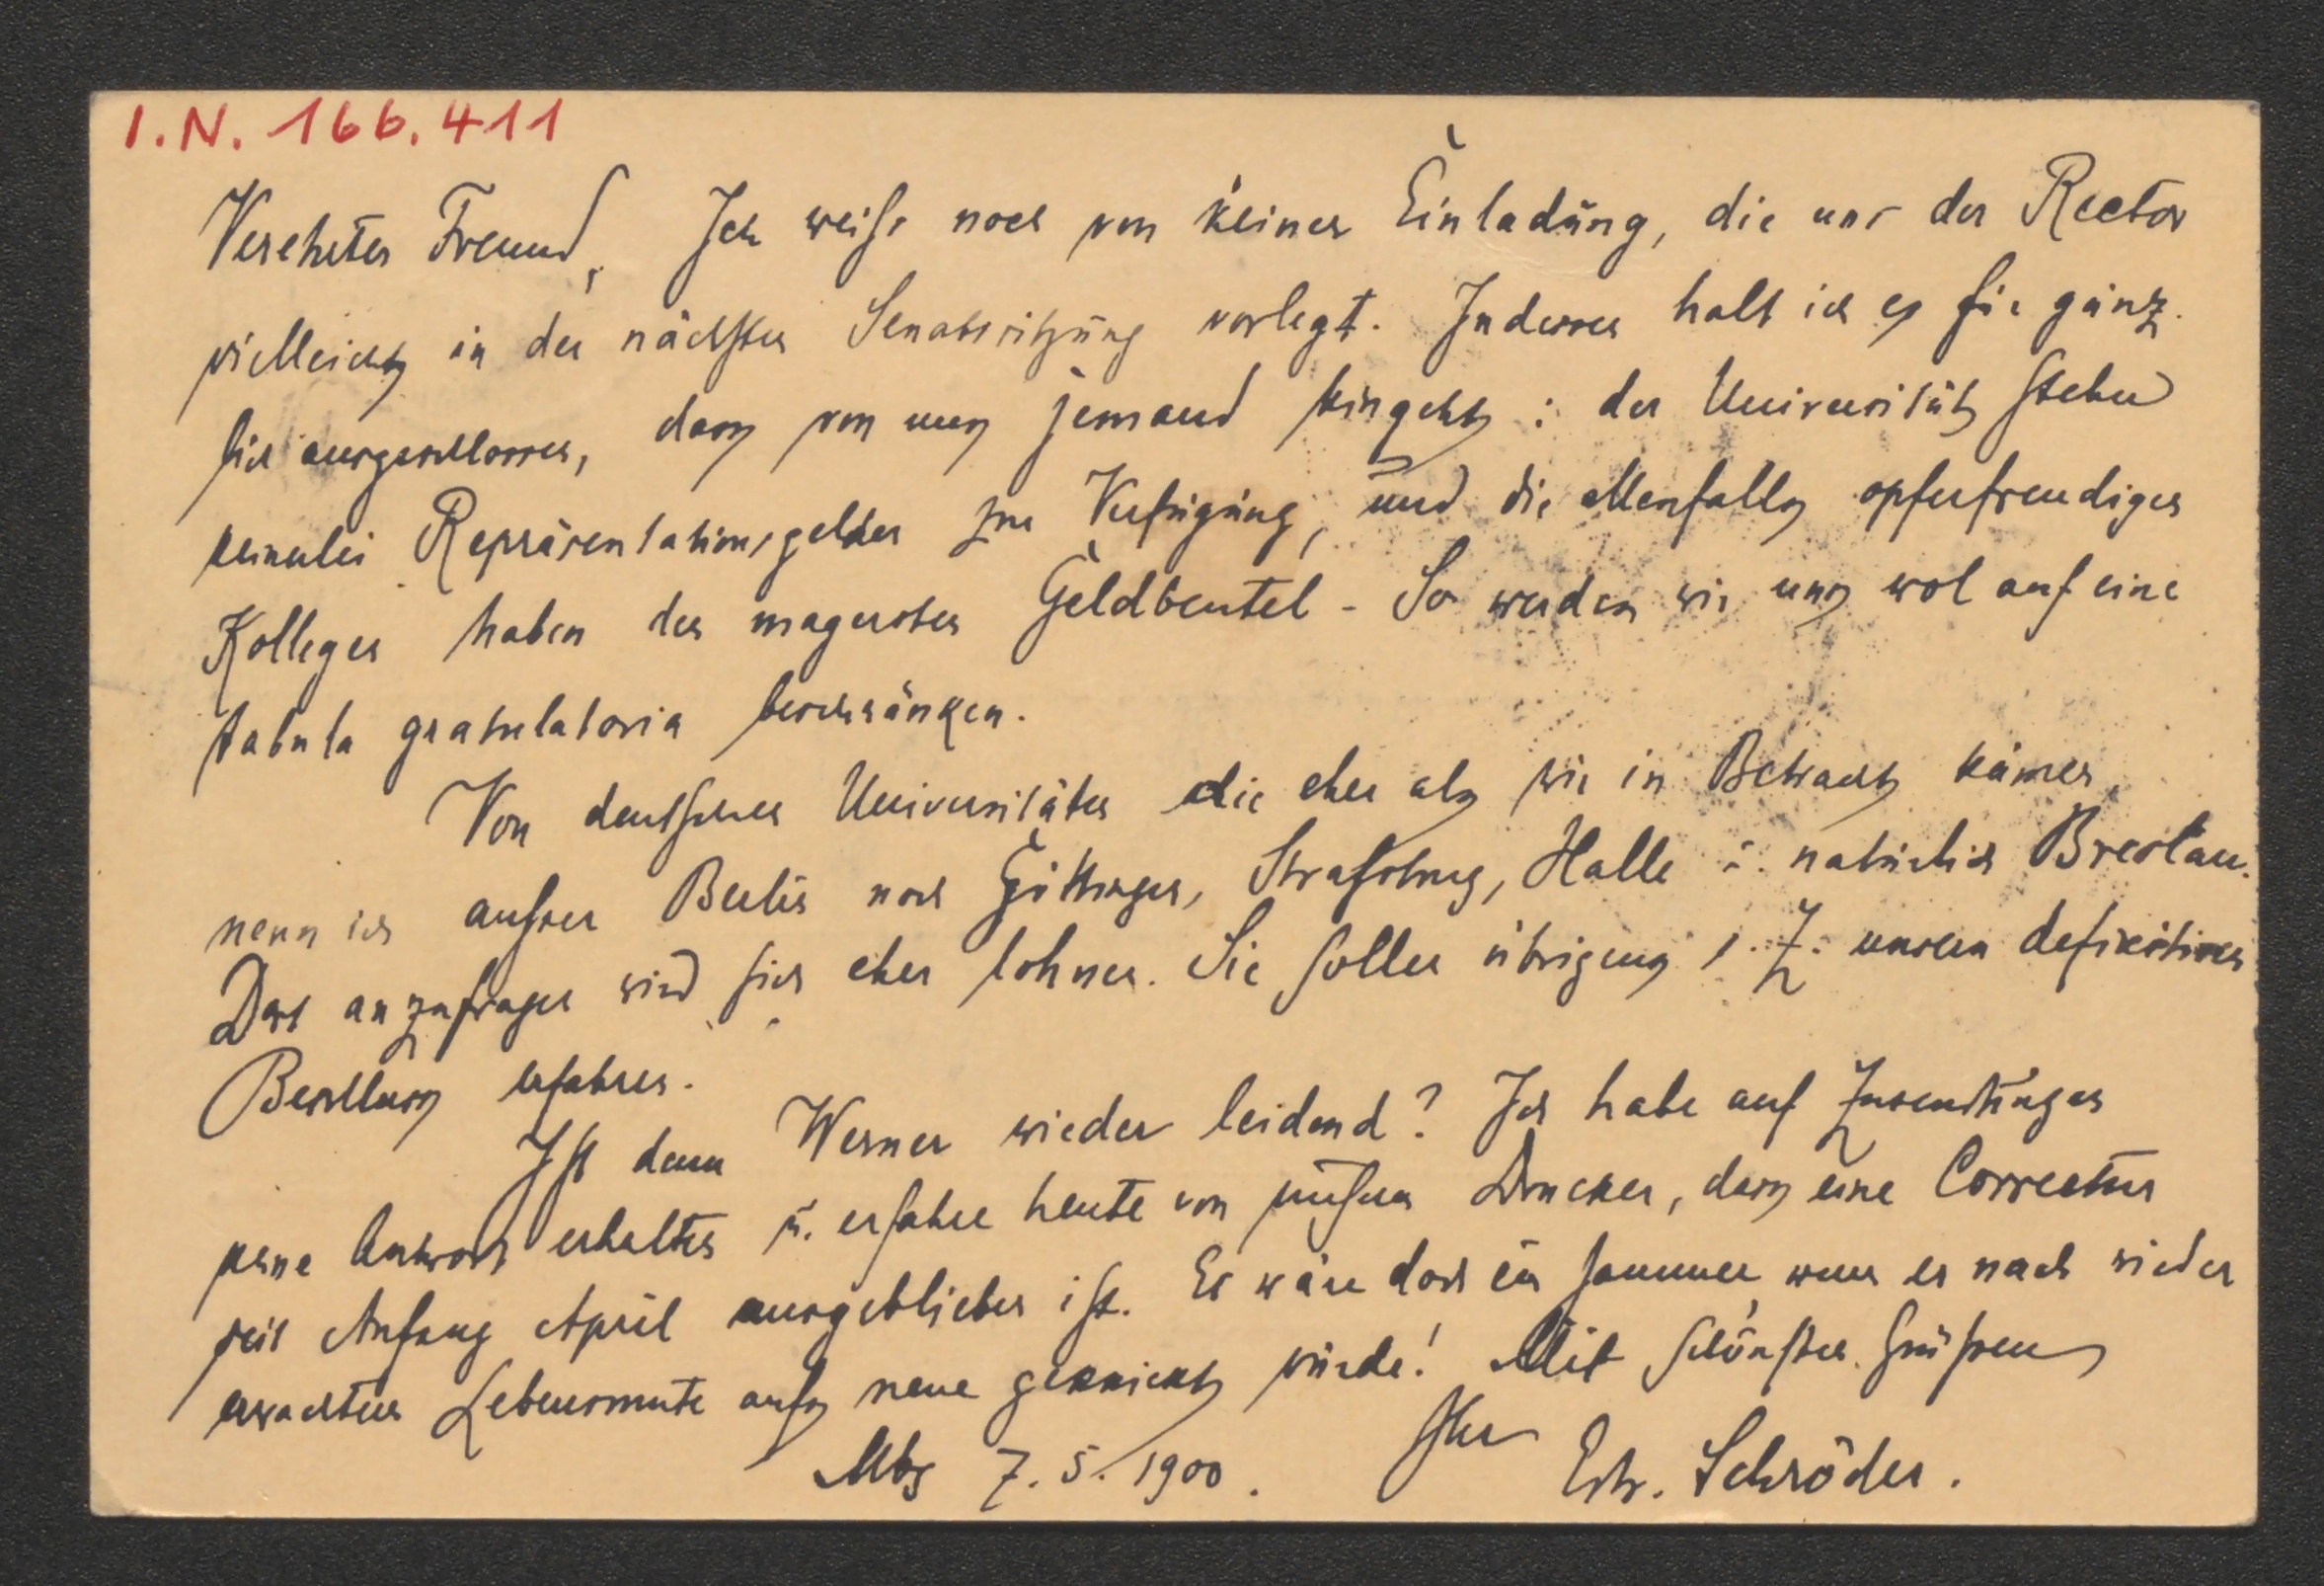 I.N. 166.411
Verehrter Freund, Ich weiß noch von keiner Einladung, die uns der Rector
vielleicht in der nächsten Senatssitzung vorlegt. Indessen halt ich es für gänz-
lich ausgeschlossen, dass von uns jemand hingeht: der Universität stehn
keinerlei Repräsentationsgelder zur Verfügung, und die allenfalls opferfreudigen
Kollegen haben den magersten Geldbeutel - So werden wir uns wol auf eine
tabula gratulatoria beschränken.
Von deutschen Universitäten die eher als wir in Betracht kämen,
nenn ich außer Berlin noch Göttingen, Straßburg, Halle u. natürlich Breslau.
Dort anzufragen wird sich eher lohnen. Sie sollen übrigens s. Z. unsern definitiven
Beschluss erfahren.
Ist denn Werner wieder leidend? Ich habe auf Zusendungen
keine Antwort erhalten u. erfahre heute von unserm Drucker, dass eine Correctur
seit Anfang April ausgeblieben ist. Es wäre doch ein Jammer, wenn er nach wieder
erwachtem Lebensmute aufs neue geknickt würde! Mit schönsten Grüßen
Ihr
Mbg 7.5.1900. Edw. Schröder.